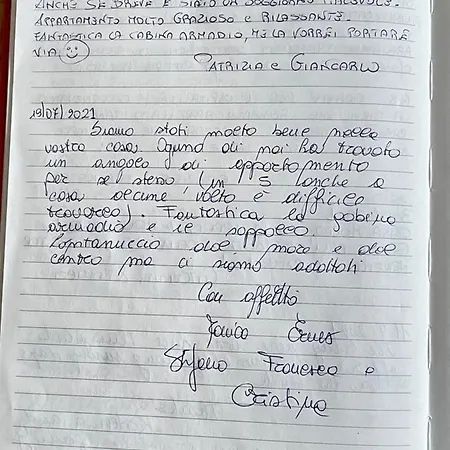 ANCHE SE BREVE È STATO UN SOGGIORNO PIACEVOLE.
APPARTAMENTO MOLTO GRAZIOSO E RILASSANTE.
FANTASTICA LA CABINA ARMADIO, ME LA VORREI PORTARE
VIA
PATRIZIA e GIANCARLO
19/07/2021
Siamo stati molto bene nella
vostra casa. Ognuno di noi ha trovato
un angolo di appartamento
per se stesso (in 5 anche a
casa alcune volte è difficile
trovarlo). Fantastica la cabina
armadio e il soppalco.
Lontanuccio dal mare e dal
centro ma ci siamo adattati
Con affetto
Stefano Francesco e
Cristina